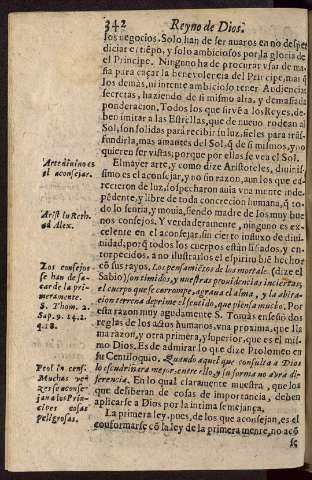 342 Reyno de Dios.
los negocios. Solo han de ser auaros en no desper
diciar el tiẽpo, y solo ambiciosos por la gloria de
el Principe. Ninguno ha de procurar vsar de ma-
ña para caçar la beneuolencia del Principe, mas q̃
los demàs, ni intente ambicioso tener Audiencias
secretas, haziendo de si mismo alta, y demasiada
ponderacion. Todos los que siruẽ a los Reyes, de-
ben imitar a las Estrellas, que de nueuo rodean al
Sol, son solidas para recibir su luz, fieles para trãs-
fundirla, mas amantes del Sol, q̃ de si mismas, y no
quieren ser vistas, porque por ellas se vea el Sol.
Arte diuino es
el aconsejar.
El mayor arte, y como dize Aristoteles, diuinis-
simo es el aconsejar, y no sin razon, aun los que ca-
recieron de luz, sospecharon auia vna mente inde-
pẽdente, y libre de toda concrecion humana, q̃ to-
do lo sentia, y mouia, siendo madre de los muy bue
nos consejos. Y verdaderamente, ninguno es ex-
celente en el aconsejar, sin cierto influxo de diui-
nidad, porq̃ todos los cuerpos estàn lisiados, y en-
torpecidos, a no ilustrarlos el espiritu biẽ hechor
Arist lu Reth.
ad Alex.
cõ sus rayos. Los pensamiẽtos de los mortale. (dize el
Sabio) son timidos, y nuestras prouidencias inciertas,
el cuerpo que se corrompe, agraua el alma, y la abita-
cion terrena deprime el sentido, que piensa mucho. Por
esta razon muy agudamente S. Tomàs enseñò dos
reglas de los actos humanos, vna proxima, que es la
razon, y otra primera, y superior, que es el mis-
mo Dios.
Los consejos
se han de sa-
car de la pri-
mera mente.
S. Thom. 2.
Sap. 9. 14. 2.
q. 18.
Es de admirar lo que dize Ptolomeo en
su Centiloquio. Quando aquel que consulta a Dios
lo escudriñara mejor, entre ello, y su forma no aura di-
ferencia. En lo qual claramente muestra, que los
que deliberan de cosas de importancia, deben
aplicarse a Dios por la intima semejança.
Ptol in cent.
Muchas ve-
zes se aconse-
jan a los Prin-
cipes cosas
peligrosas.
La primera ley, pues, de los que aconsejan, es el
conformarse cõ la ley de la primera mente, no acõ
se